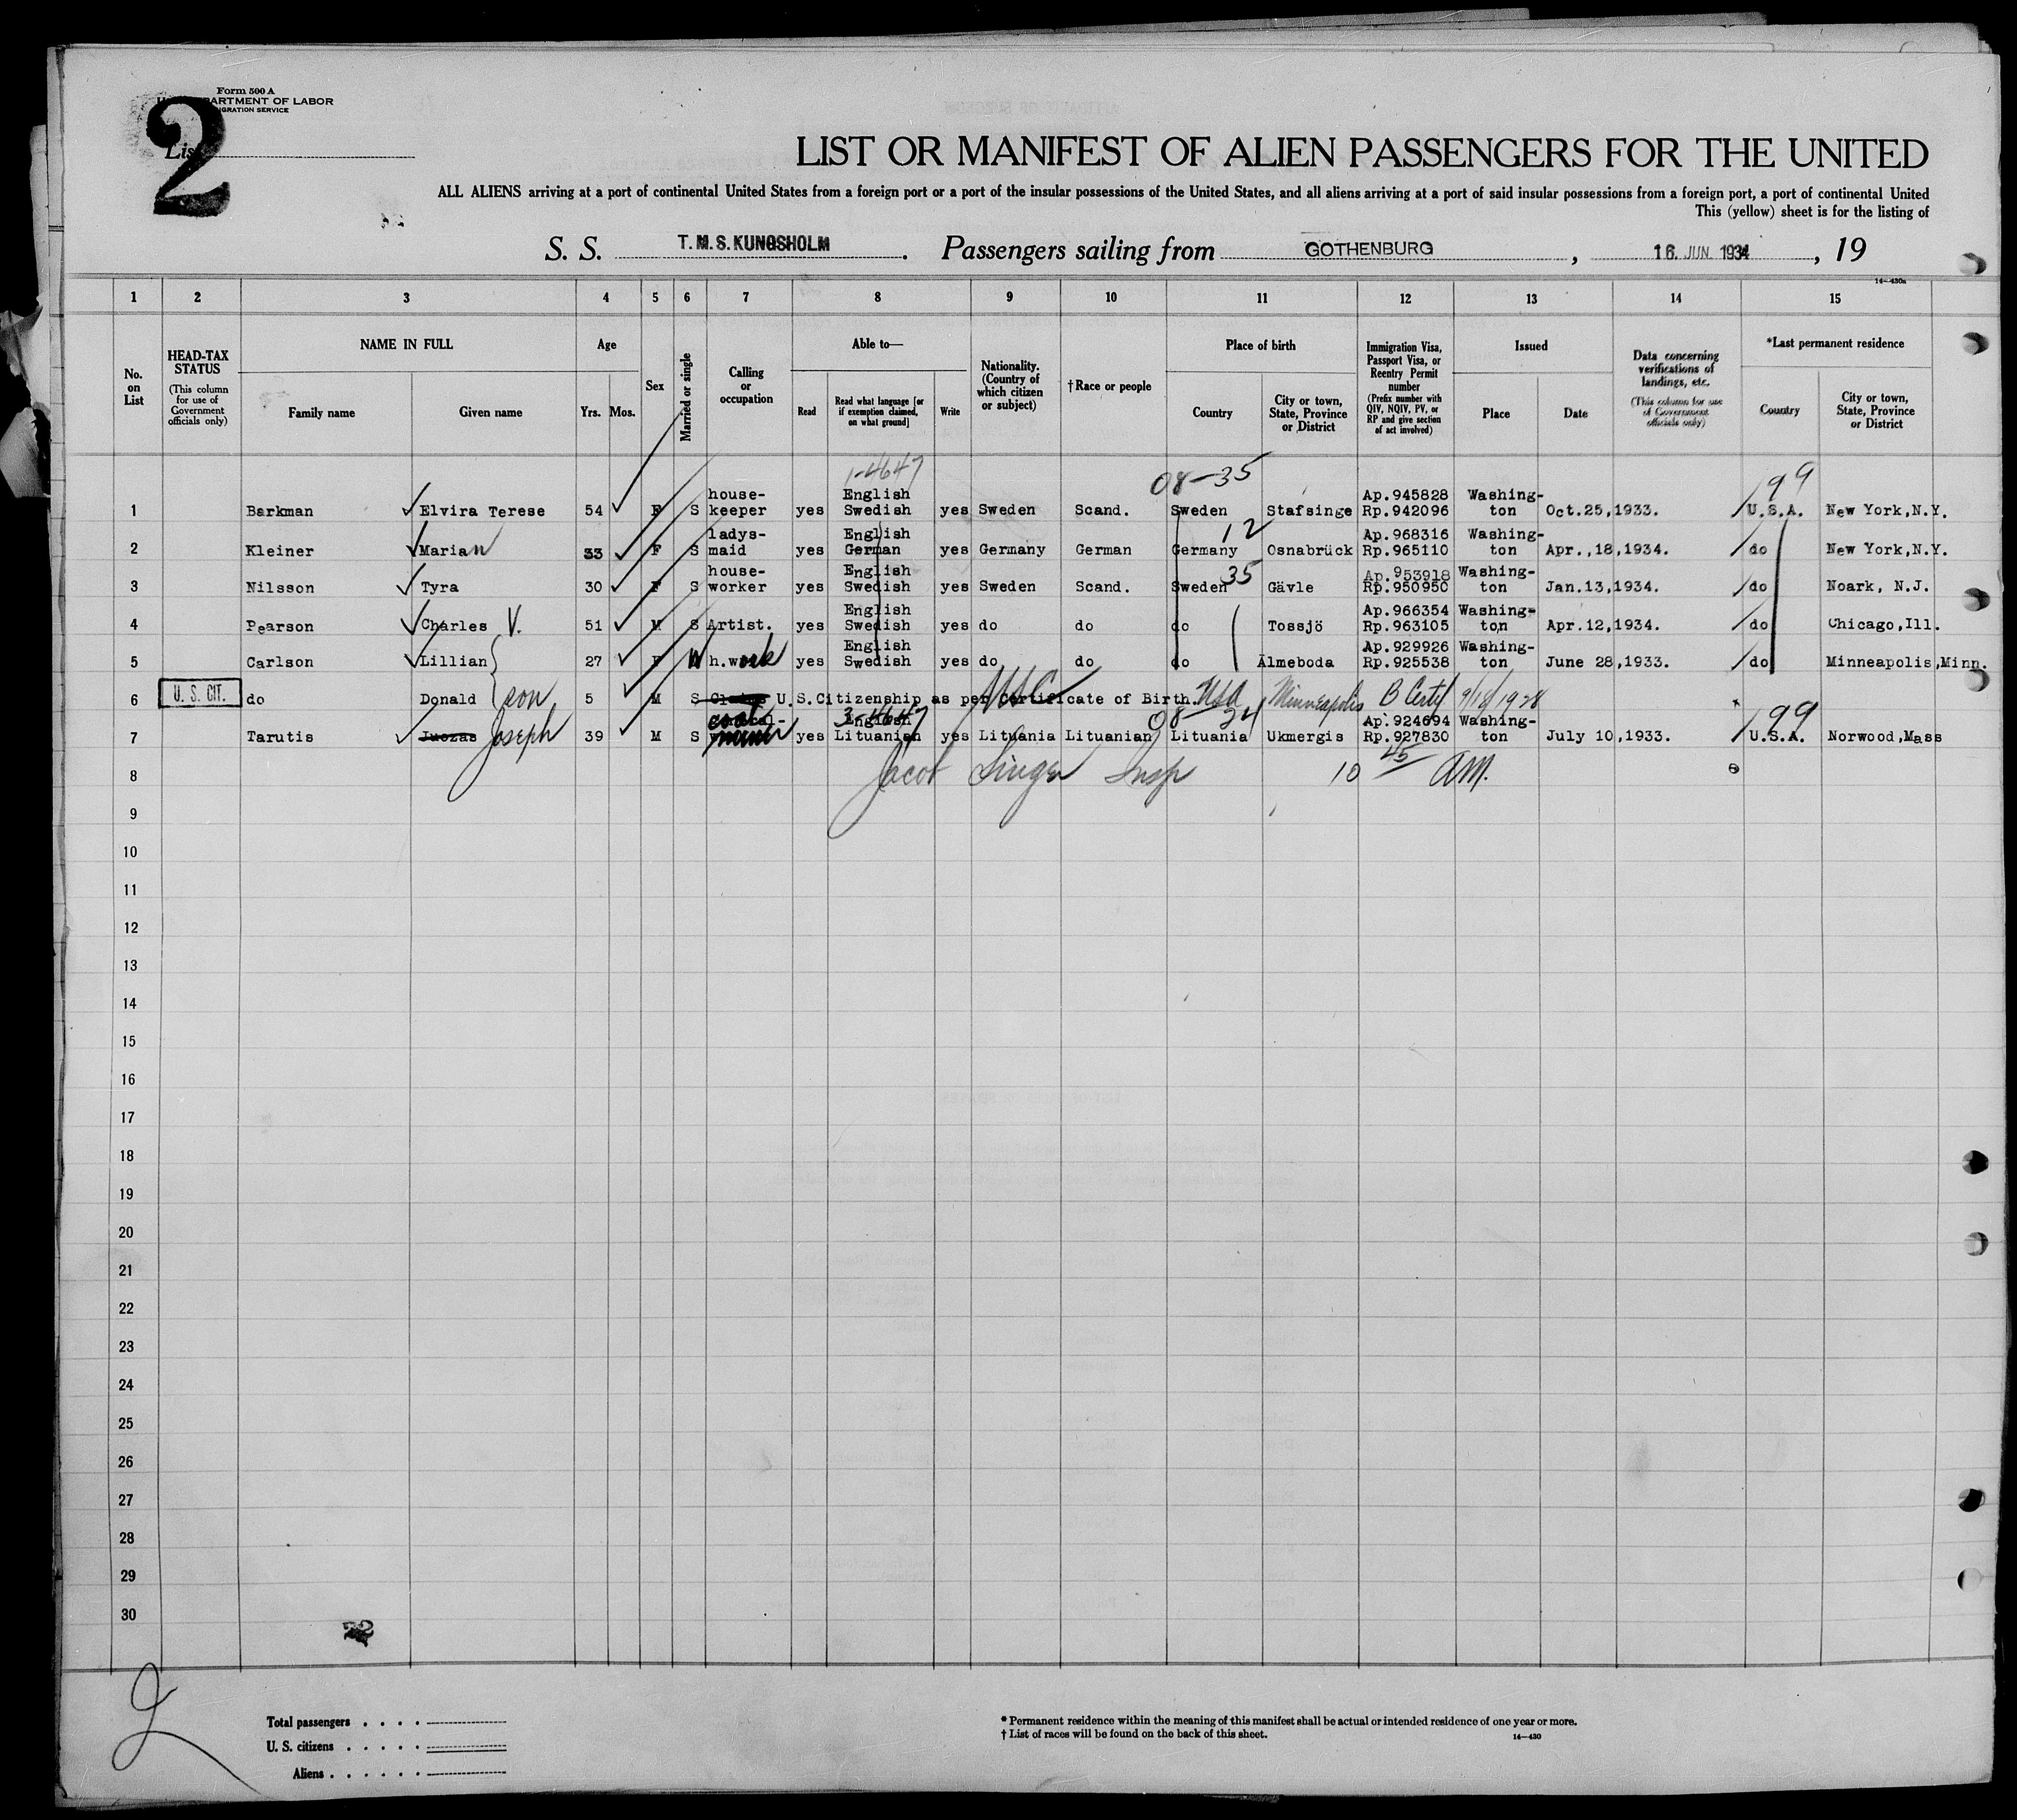 Form 500 A
DEPARTMENT OF LABOR
IMMIGRATION SERVICE
2
List
LIST OR MANIFEST OF ALIEN PASSENGERS FOR THE UNITED
ALL ALIENS arriving at a port of continental United States from a foreign port or a port of the insular possessions of the United States, and all aliens arriving at a port of said insular possessions from a foreign port, a port of continental United
This (yellow) sheet is for the listing of
S. S. T.M.S.KUNGSHOLM. Passengers sailing from GOTHENBURG, 16. JUN. 1934, 19
14-430a
1 2 3 4 5 6 7 8 9 10 11 12 13 14 15
No. on List
HEAD-TAX STATUS (This column for use of Government officials only)
NAME IN FULL
Family name Given name
Age
Yrs. Mos.
Sex
Married or single
Calling or occupation
Able to—
Read
Read what language [or if exemption claimed, on what ground]
Write
Nationality. (Country of which citizen or subject)
†Race or people
Place of birth
Country
City or town, State, Province or District
Immigration Visa, Passport Visa, or Reentry Permit number (Prefix number with QIV, NQIV, PV, or RP and give section of act involved)
Issued
Place Date
Data concerning verifications of landings, etc. (This column for use of Government officials only)
*Last permanent residence
Country
City or town, State, Province or District
1-4647 08-35 99
house- English Ap.945828 Washing-
1 Barkman Elvira Terese 54 F S keeper yes Swedish yes Sweden Scand. Sweden Stafsinge Rp.942096 ton Oct.25,1933. U.S.A. New York,N.Y.
ladys- English 12 Ap.968316 Washing-
2 Kleiner Marian 33 F S maid yes German yes Germany German Germany Osnabrück Rp.965110 ton Apr.,18,1934. do New York,N.Y.
house- English 35 Ap.953918 Washing-
3 Nilsson Tyra 30 F S worker yes Swedish yes Sweden Scand. Sweden Gävle Rp.950950 ton Jan.13,1934. do Noark, N.J.
English Ap.966354 Washing-
4 Pearson Charles V. 51 M S Artist. yes Swedish yes do do do Tossjö Rp.963105 ton Apr.12,1934. do Chicago,Ill.
English Ap.929926 Washing-
5 Carlson Lillian 27 F W h.work yes Swedish yes do do do Älmeboda Rp.925538 ton June 28,1933. do Minneapolis,Minn.
U. S. CIT.
6 do Donald son 5 M S Claims U.S.Citizenship as per Certificate of Birth. USC USA Minneapolis B Certif 9/18/1928
coal 3-4647 08-24 99
English Ap.924694 Washing-
7 Tarutis Juozas Joseph 39 M S miner yes Lituanian yes Lituania Lituanian Lituania Ukmergis Rp.927830 ton July 10,1933. U.S.A. Norwood,Mass
8 Jacob Singer Insp 10 45 AM.
9
10
11
12
13
14
15
16
17
18
19
20
21
22
23
24
25
26
27
28
29
30
2
Total passengers . . . .
U. S. citizens . . . . .
Aliens . . . . . .
* Permanent residence within the meaning of this manifest shall be actual or intended residence of one year or more.
† List of races will be found on the back of this sheet.
14—430